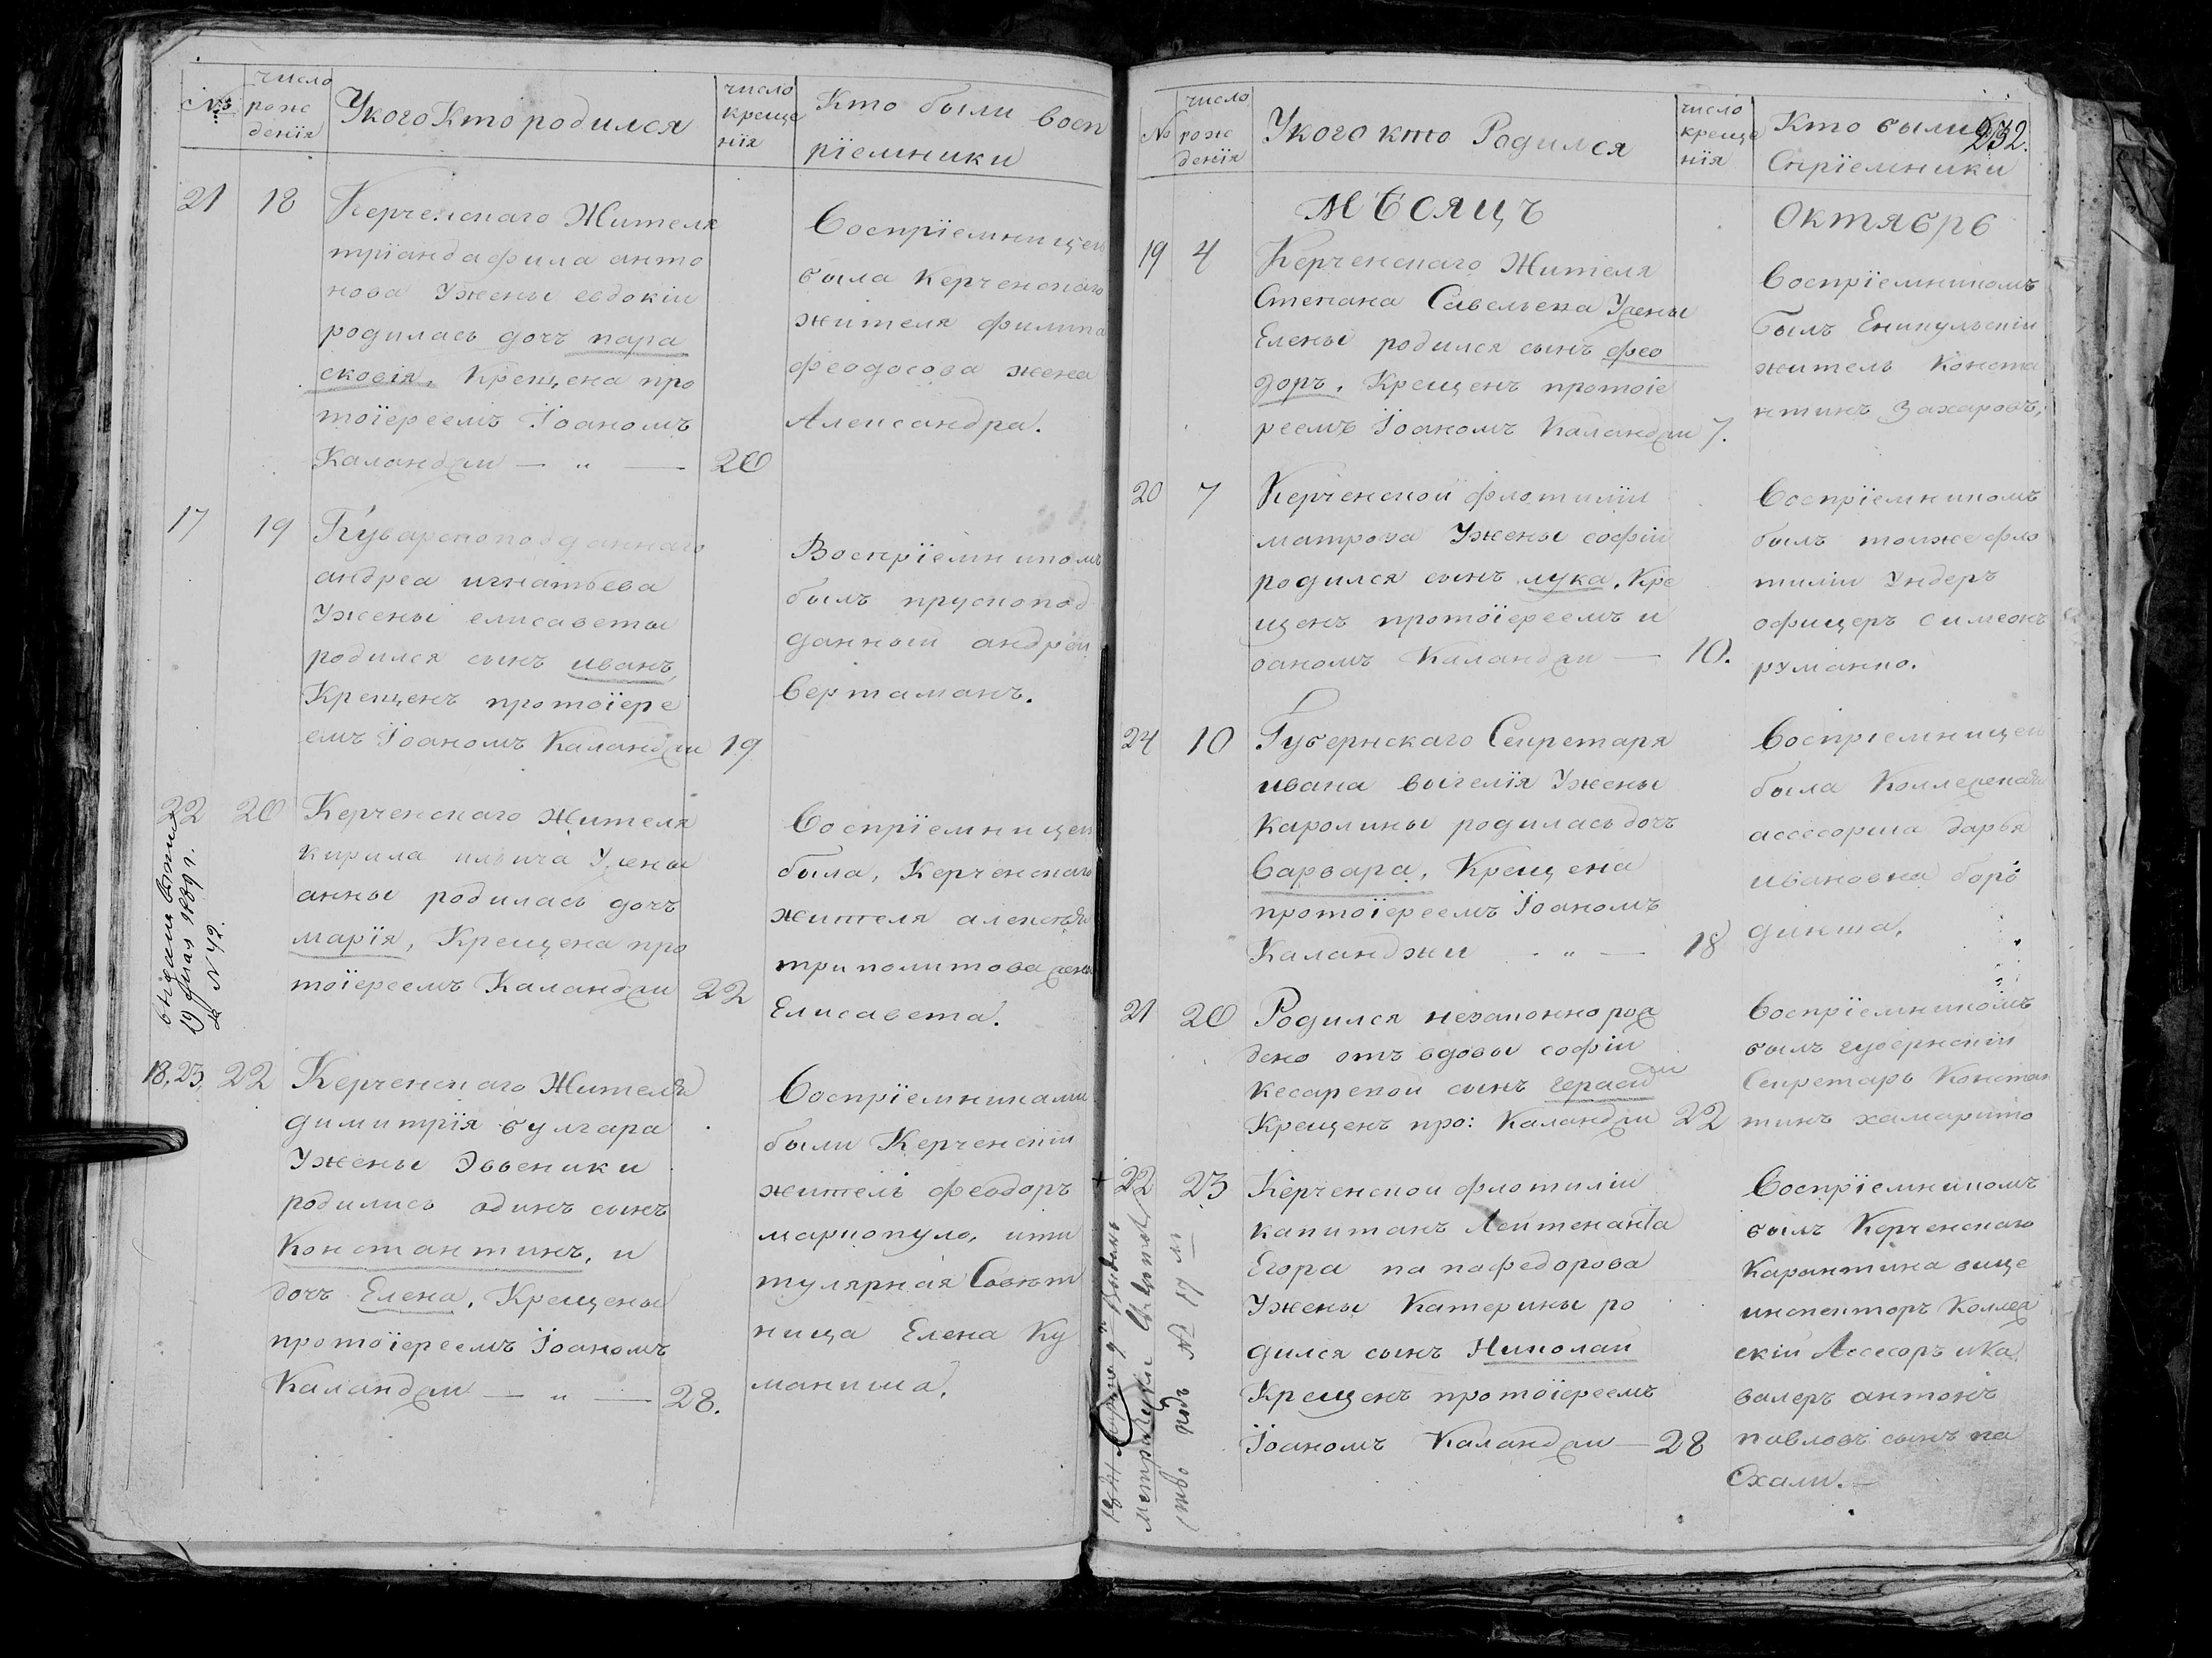 №
число
рож
денїя
Укого Кто родился
число
креще
нїя
Кто были восп
рїемники
21 18 Керченскаго Жителя
трїандафила анто
нова Ужены евдокіи
родилась дочъ пара
сковїя, Крещена про
тоїереемъ Їоаномъ
Каланджи — „ — 20
Воспрїемницею
была Керченскаго
жителя филипа
феодосова жена
Александра.
17 19
андреа игнатьева
Ужены елисаветы
родился сынъ иванъ,
Крещенъ протоїере
емъ Їоаномъ Каланджи 19
Воспрїемникомъ
былъ прускопод
данный андрей
вертаманъ.
22 20 Керченскаго жителя
кирила ильича Ужены
анны родилась дочъ
марїя, Крещена про
тоїереемъ Каланджи 22
Воспрїемницею
была, Керченскаго
жителя алексѣя
триполитова жена
Елисавета.
№ 42.
18, 23, 22 Керченскаго Жителя
димитрїя булгара
Ужены Эвѳеники
родились одинъ сынъ
Константинъ, и
дочъ Елена, Крещены
протоїереемъ Їоаномъ
Каланджи — „ — 28.
Воспрїемниками
были Керченскїи
житель феодоръ
мариопуло, ити
тулярная Совѣт
ница Елена Ку
манима.
№
число
рож
денїя
Укого кто Родился
число
креще
нїя
Кто были
232.
Спрїемники
МѢСЯЦЪ Октябрь
19 4 Керченскаго Жителя
Степана Савельева Ужены
Елены родился сынъ фео
доръ, Крещенъ протоіе
реемъ Їоаномъ Каланджи 7.
Воспрїемникомъ
былъ Еникульскїи
житель Конста
нтинъ Захаровъ,
20 7 Керченской флотилїи
матроза Ужены софіи
родился сынъ лука, Кре
щенъ протоїереемъ и
оаномъ Каланджи — 10.
Воспрїемникомъ
былъ тойже фло
тиліи Ундеръ
офицеръ симеонъ
руманко.
24 10 Губернскаго Секретаря
ивана вытелїя Ужены
Каролины родилась дочъ
Варвара, Крещена
протоїереемъ Їоаномъ
Каланджи — „ — 18
Воспрїемницею
была Коллежская
ассесорша дарья
ивановна боро
динша,
21 20 Родился незаконнорож
дено отъ вдовы софіи
кесарской сынъ герасим
Крещенъ про: Каланджи 22
Воспрїемникомъ
былъ губернскїи
Секретарь Констан
тинъ хамарито
22 23 Керченской флотиліи
капитанъ Лейтенанта
Егора папафедорова
Ужены Катерины ро
дился сынъ Николай
Крещенъ протоїереемъ
Їоаномъ Каланджи — 28
Воспрїемникомъ
былъ Керченскаго
Карантина вице
инспекторъ Коллеж
скїи Ассесоръ ика
валеръ антонъ
павловъ сынъ па
схали. —
ство подъ № 17 мъ